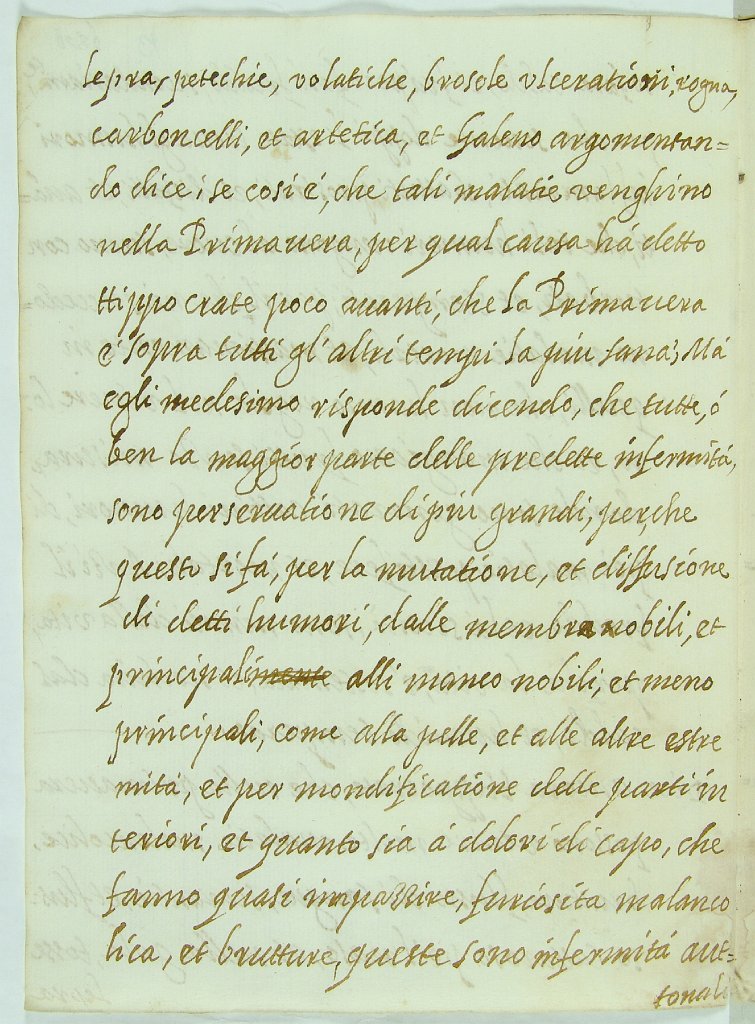 lepra, petechie, volatiche, brosole ulcerationi, rogna,
carboncelli, et artetica, et Galeno argomentan=
do dice; se cosi é, che tali malatie venghino
nella Primavera, per qual causa há detto
Hippocrate poco avanti, che la Primavera
é sopra tutti gl'altri tempi la piu sana; Má
egli medesimo risponde dicendo, che tutte, ó
ben la maggior parte delle predette infermitá,
sono perservatione di piu grandi, perche
questo si fá, per la mutatione, et diffusione
di detti humori, dalle membra nobili, et
principali alli manco nobili, et meno
principali, come alla pelle, et alle altre estre
mitá, et per mondificatione delle parti in
teriori, et quanto sia á dolori di capo, che
fanno quasi impazzire, furiosita malanco
lica, et brutture, queste sono infermitá aut=
tonali